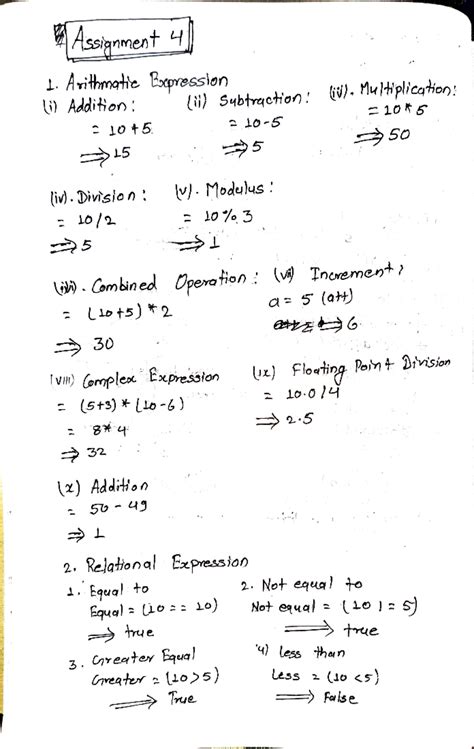 Assignment 4
1. Arithmatic Expression
(i) Addition :
= 10+5
⇒ 15
(ii) Subtraction :
= 10-5
⇒ 5
(iii). Multiplication :
= 10*5
⇒ 50
(iv). Division :
= 10/2
⇒ 5
(v). Modulus :
= 10%3
⇒ 1
(vi). Combined Operation :
= (10+5) * 2
⇒ 30
(vii) Increment :
a = 5 (a++)
⇒ 6
(viii) Complex Expression
= (5+3) * (10-6)
= 8*4
⇒ 32
(ix) Floating Point Division
= 10.0/4
⇒ 2.5
(x) Addition
= 50 - 49
⇒ 1
2. Relational Expression
1. Equal to
Equal = (10 == 10)
⇒ true
2. Not equal to
Not equal = (10 != 5)
⇒ true
3. Greater Equal
Greater = (10>5)
⇒ True
4) less than
Less = (10 <5)
⇒ False